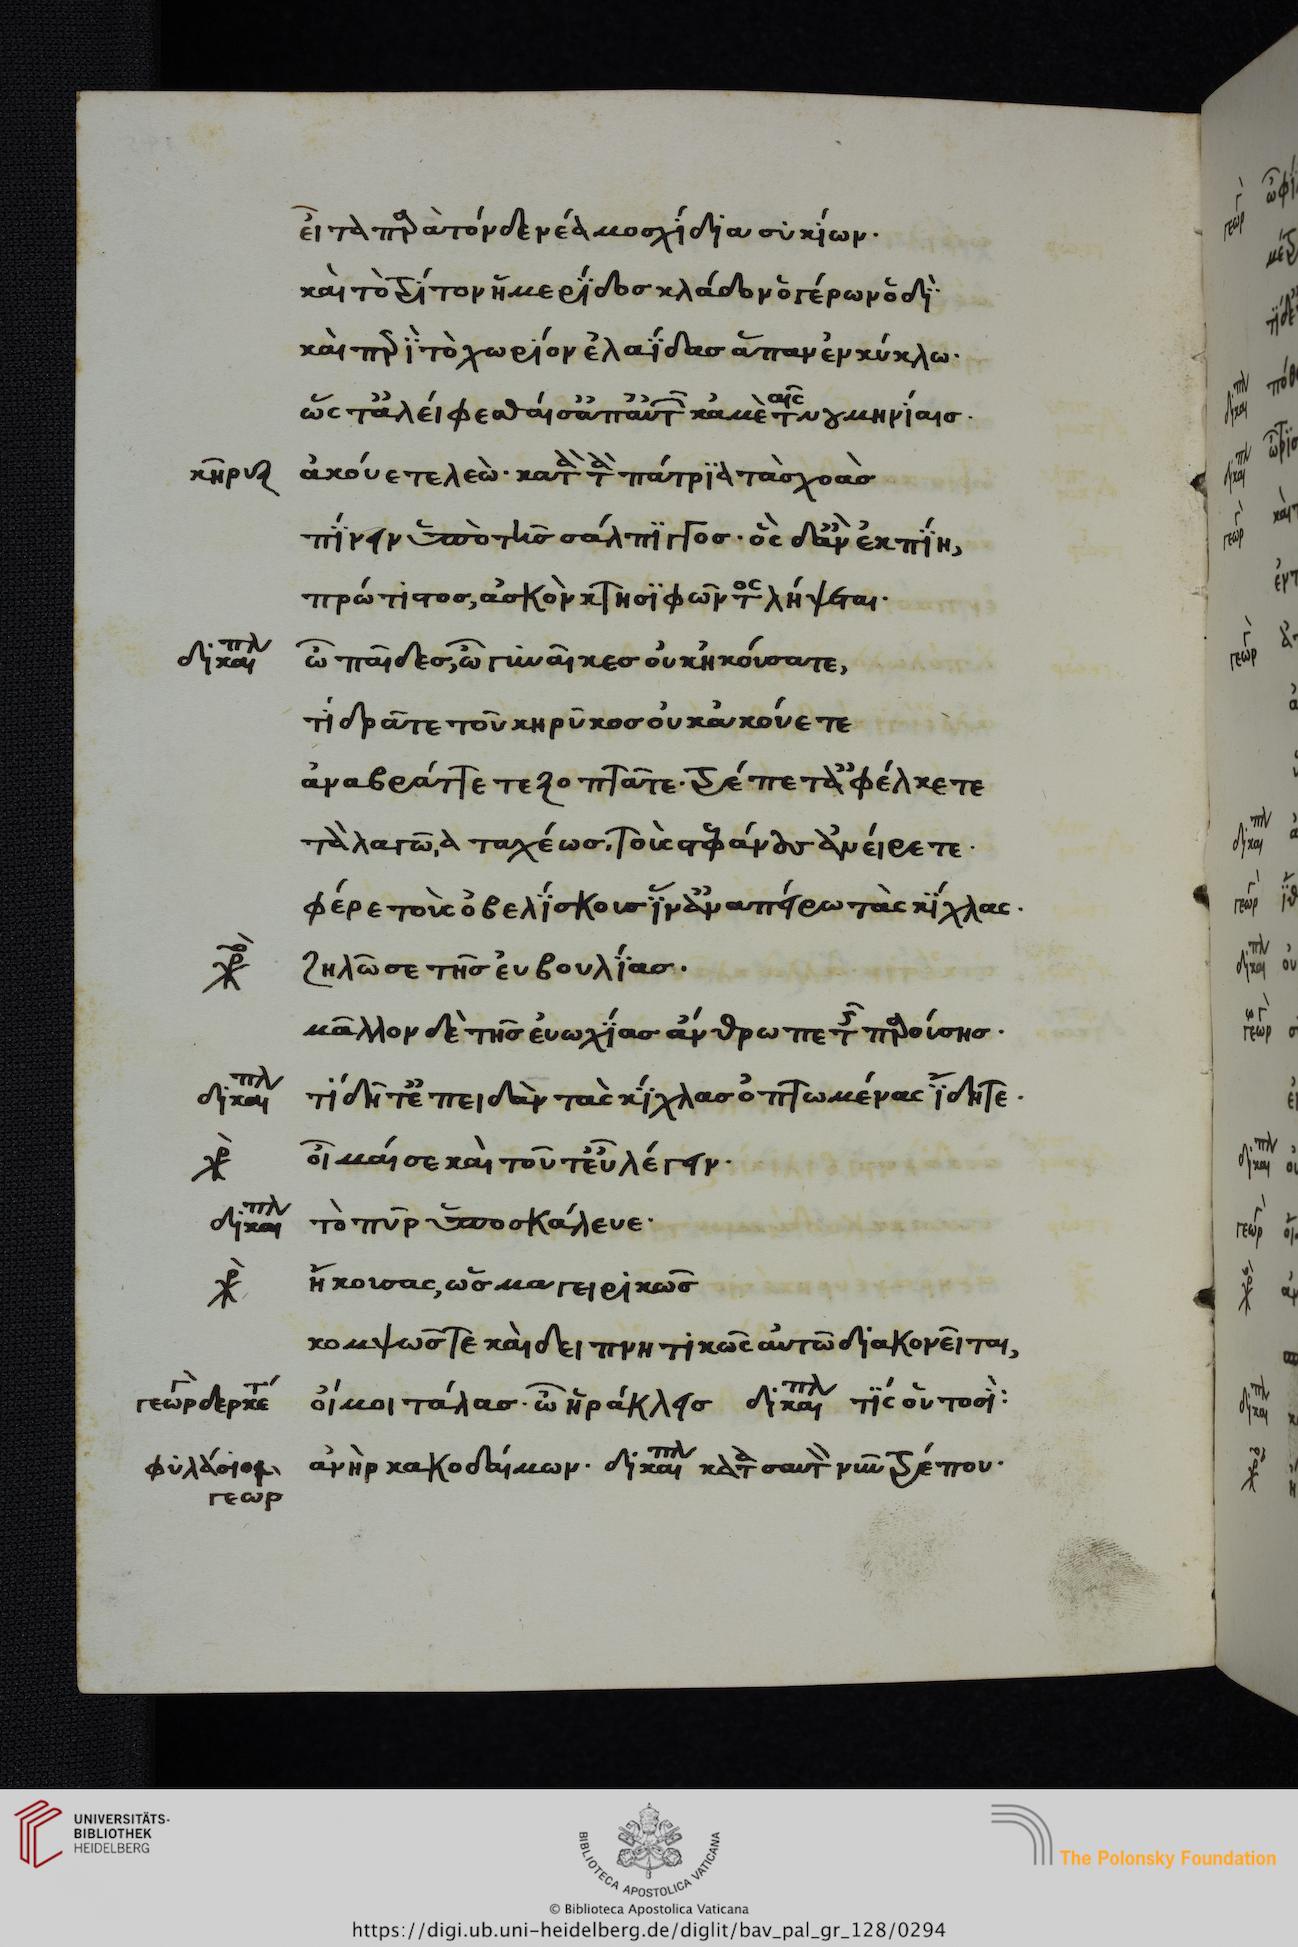 εἶτα παρὰ τόνδε νέα μοσχίδια συκίων·
καὶ τὸ τρίτον ἡμερίδος κλάδον ὁ γέρων ὁδὶ
καὶ περὶ τὸ χωρίον ἐλαΐδας ἅπαν ἐν κύκλω·
ὥστ' ἀλείφεσθαί σ' ἀπ' αὐτῶν κἀμὲ ταῖς νουμηνίαις·
κῆρυξ ἀκούετε λεώ· κατὰ τὰ πάτρια τὰς χοὰς
πίνειν ὑπὸ τῆς σάλπιγγος· ὃς δ' ἂν ἐκπίη,
πρώτιστος, ἀσκὸν κτησιφῶντος λήψεται·
δικαιπλ ὦ παῖδες, ὦ γυναῖκες οὐκ ἠκούσατε,
τί δρᾶτε τοῦ κηρῦκος οὐκ ἀκούετε
ἀναβράττετε ξοπτᾶτε· τρέπετ' ἀφέλκετε
τὰ λαγῶ,α ταχέως, τοὺς στεφάνους ἀνείρετε·
φέρε τοὺς ὀβελίσκους ἵν' ἀναπείρω τὰς κίχλας·
χορὸ ζηλῶ σε τῆς εὐβουλίας·
μᾶλλον δὲ τῆς εὐωχίας ἄνθρωπε τῆς παρούσης·
δικαιπλ τί δῆτ' ἐπειδὰν τὰς κίχλας ὀπτωμένας ἴδητε·
χρ οἶμαί σε καὶ τοῦτ' εὖ λέγειν·
δικαιπλ τὸ πῦρ ὑποσκάλευε·
χρ ἤκουσας, ὡς μαγειρικῶς
κομψῶς τε καὶ δειπνητικῶς αὐτῶ διακονεῖται,
γεωργ δερκέτ οἴμοι τάλας· ὦ ἡράκλεις δικαιπλ τίς οὑτοσί:
φυλάσιος γεωρ ἀνὴρ κακοδαίμων· δικαιπλ κατὰ σαυτὸν νῦν τρέπου·
UNIVERSITÄTS-
BIBLIOTHEK
HEIDELBERG
BIBLIOTECA APOSTOLICA VATICANA
The Polonsky Foundation
© Biblioteca Apostolica Vaticana
https://digi.ub.uni-heidelberg.de/diglit/bav_pal_gr_128/0294